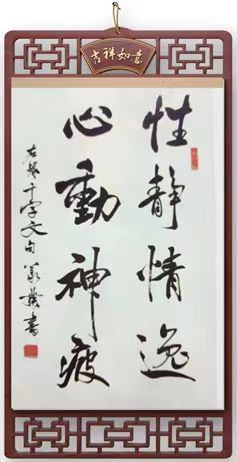 吉祥如意
性静情逸
心動神疲
千字文句書